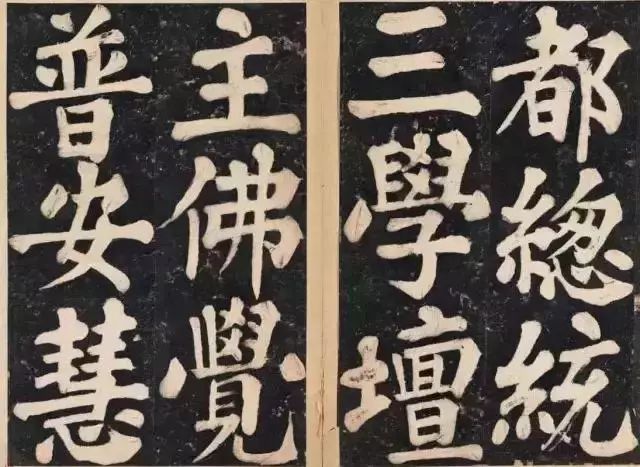 都總統
三學壇
主佛覺
普安慧